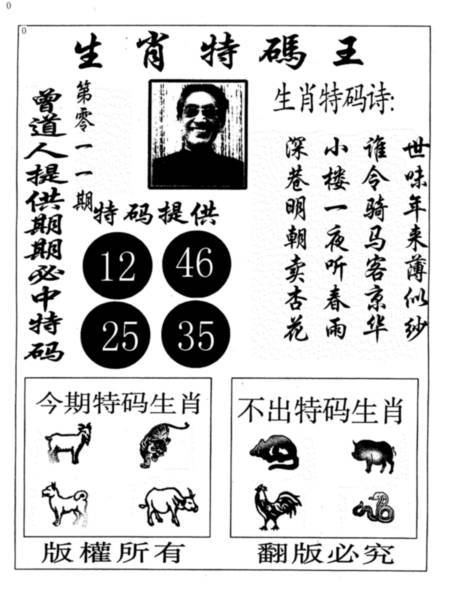 0
0
生肖特碼王
第零一一期
曾道人提供期期必中特码
特码提供
12
46
25
35
生肖特码诗:
世味年来薄似纱
谁令骑马客京华
小楼一夜听春雨
深巷明朝卖杏花
今期特码生肖
不出特码生肖
版權所有
翻版必究